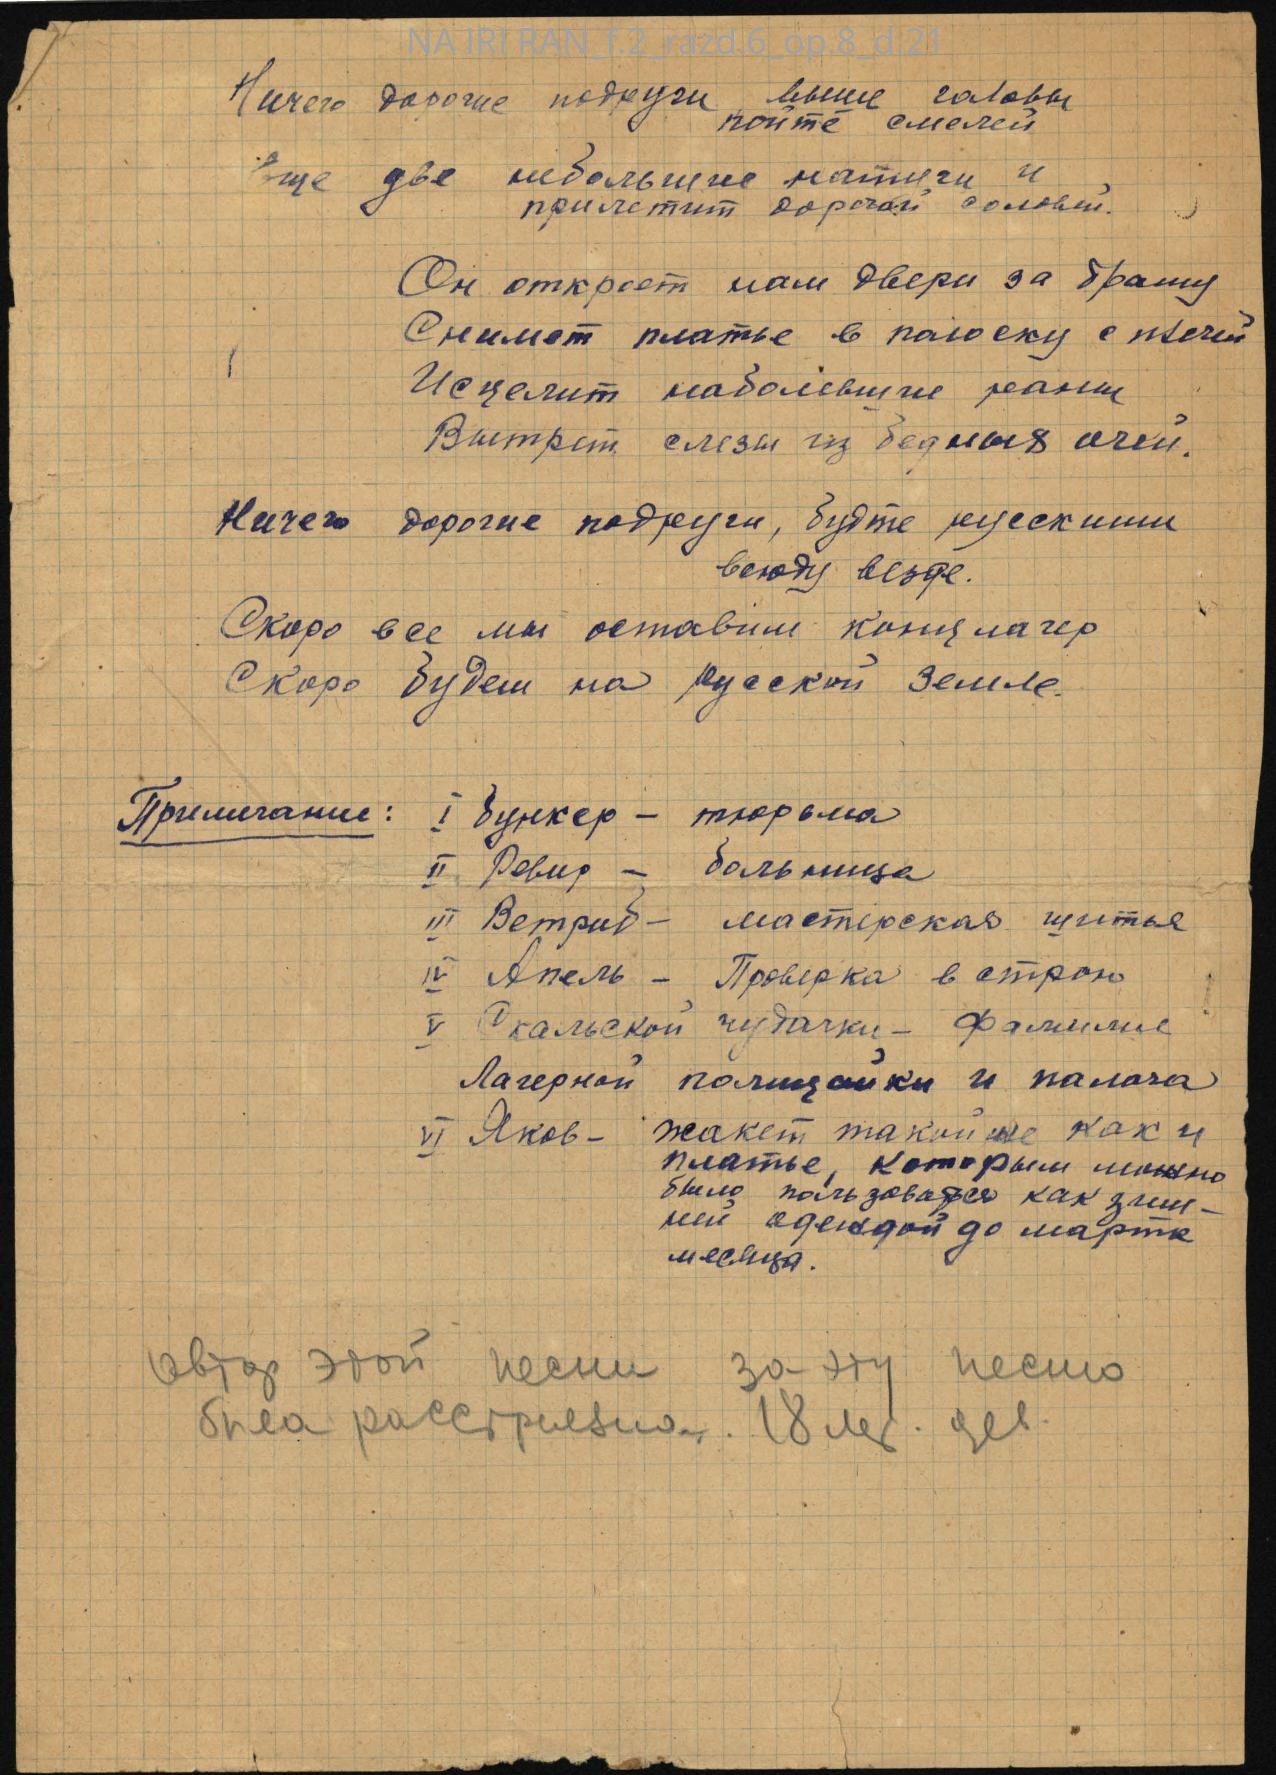 NA IRI RAN_f.2_razd.6_op.8_d.21
Ничего дорогие подруги выше головы
пойте смелей
Еще две небольшие натуги и
прилетит дорогой соловей.
Он откроет нам двери за браму
Снимет платье в полоску с плечей
Исцелит наболевшие раны
Вытрет слезы из бедных очей.
Ничего дорогие подруги, будте русскими
всюду везде.
Скоро все мы оставим концлагер
Скоро будем на русской земле.
Примечание: I бункер – тюрьма
II Ревир – больница
III Ветриб – мастерская щитья
IV Апель – Проверка в строю
V Скальской чудачки – фамилие
Лагерной полицайки и палача
VI Яков – жакет такой же как и
платье, которым можно
было пользоватся как зим-
ней одеждой до мартк
месяца.
автор этой песни за эту песню
была расстреляна. 18 лет. дев.